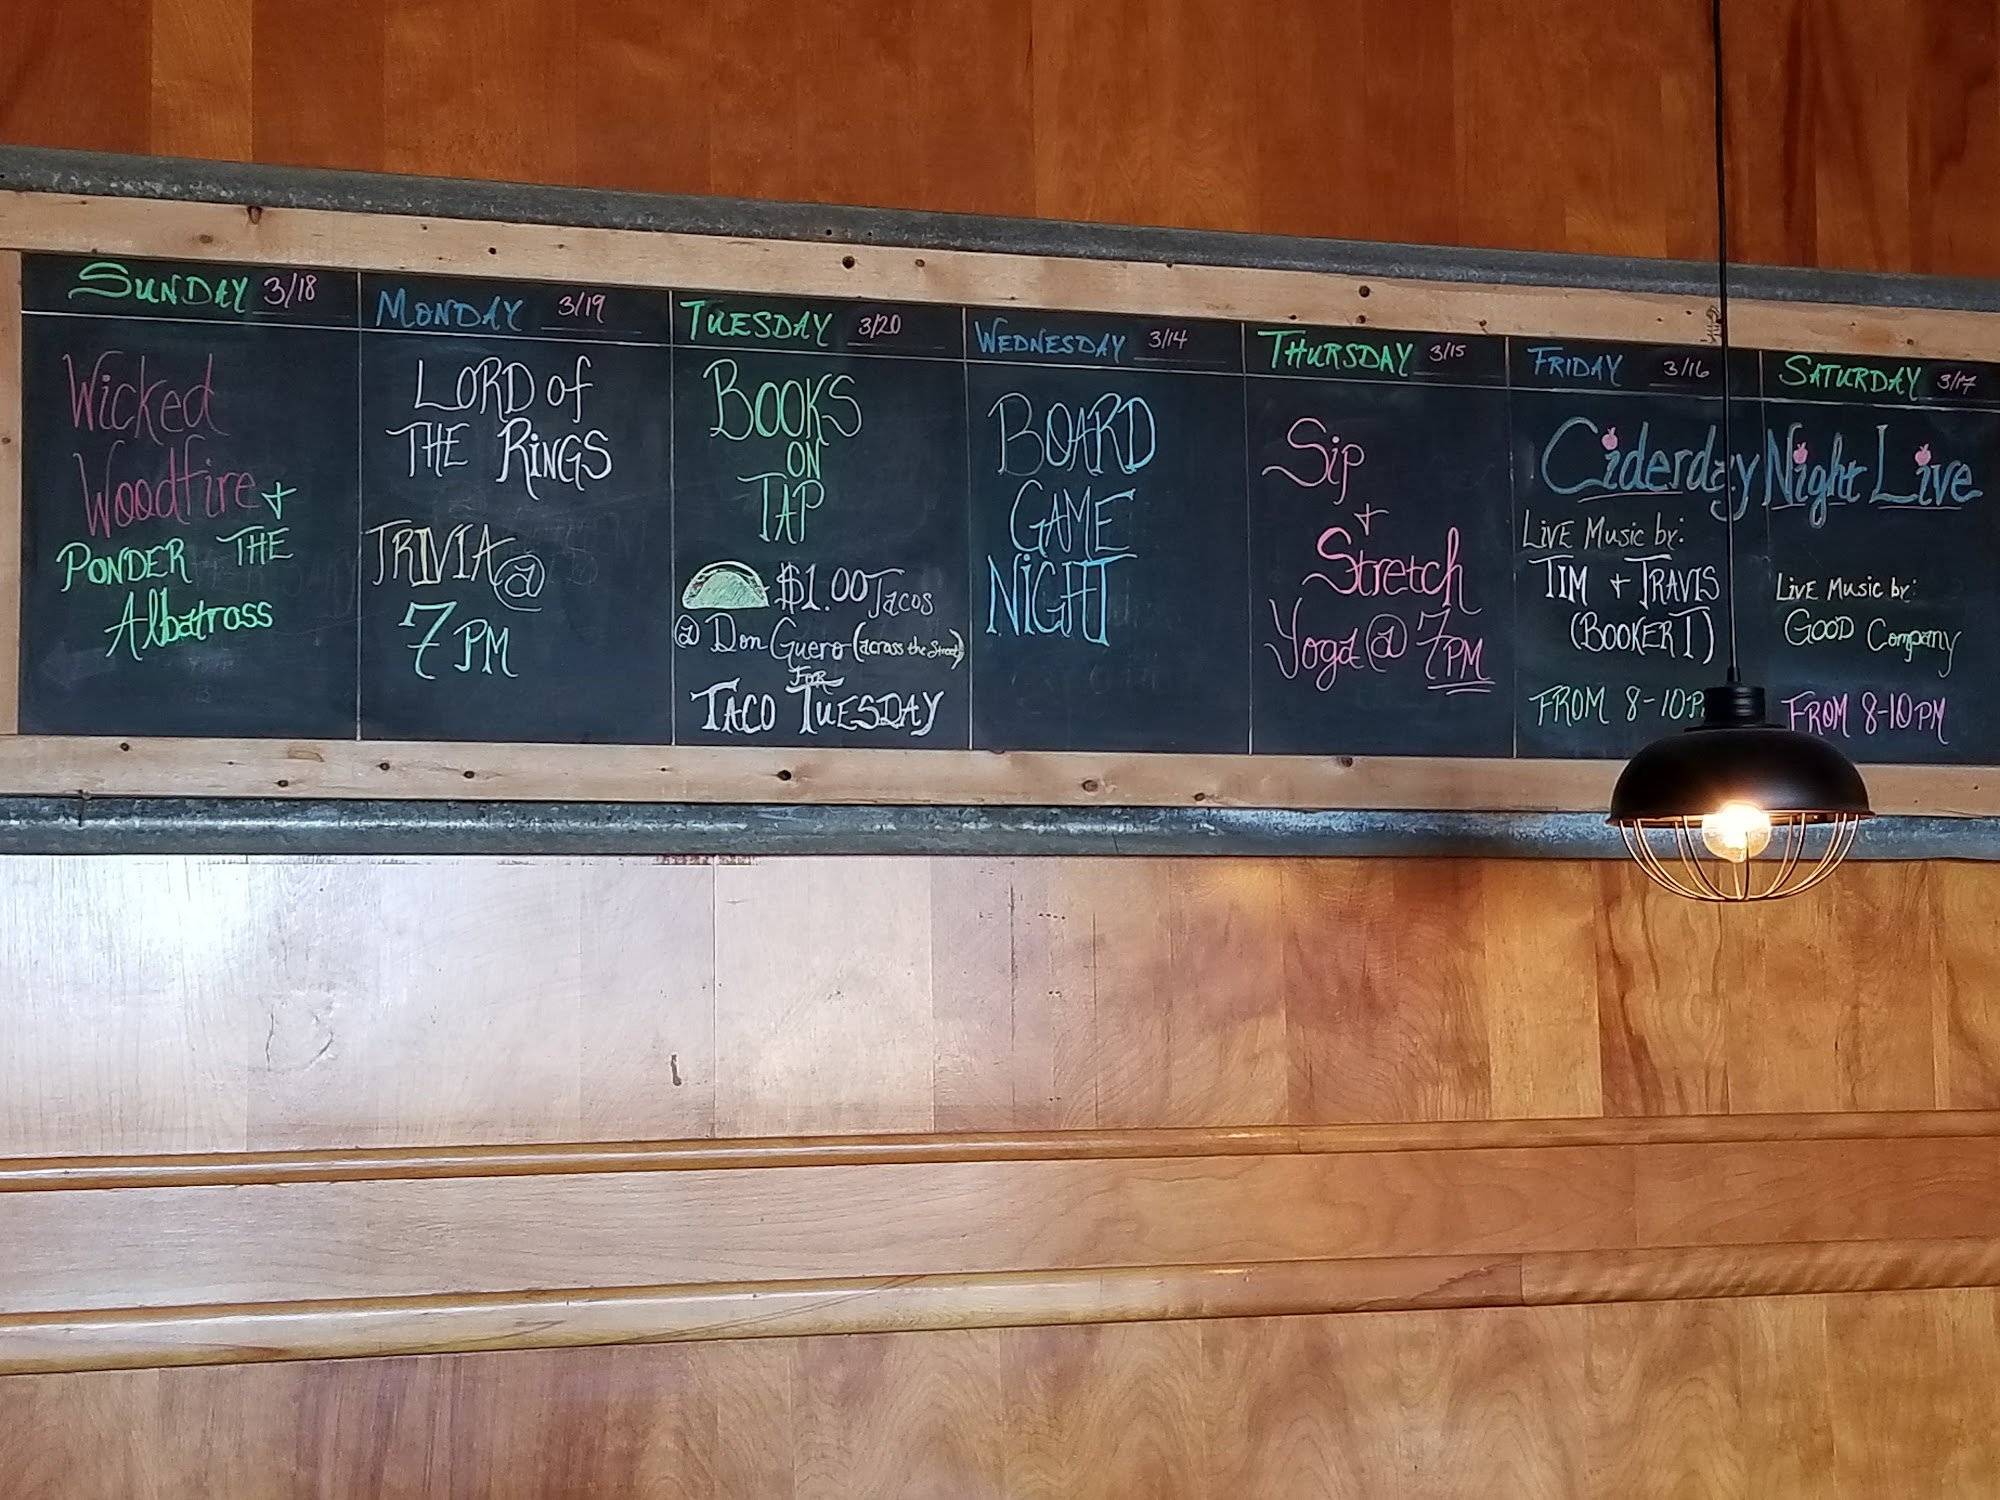 SUNDAY 3/18
Wicked
Woodfire +
PONDER THE
Albatross
MONDAY 3/19
LORD of
THE RINGS
TRIVIA @
7 PM
TUESDAY 3/20
BOOKS
ON
TAP
$1.00 Tacos
@ Don Guero (across the street)
FOR
TACO TUESDAY
WEDNESDAY 3/14
BOARD
GAME
NIGHT
THURSDAY 3/15
Sip
+
Stretch
Yoga @ 7PM
FRIDAY 3/16
SATURDAY 3/17
Ciderday Night Live
LIVE Music by:
TIM + TRAVIS
(BOOKER T)
FROM 8-10P
LIVE Music by:
GOOD Company
FROM 8-10PM